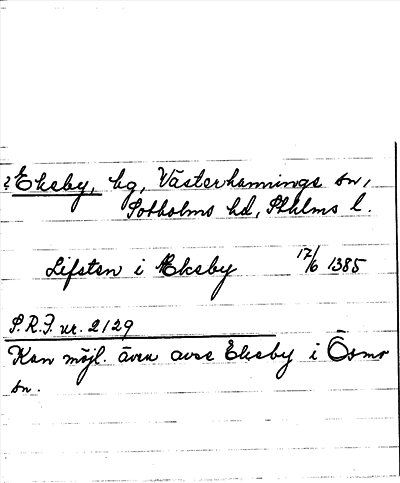 ? Ekeby, by, Västerhannings sn,
Sotholms hd, Sthlms l.
Lifsten i Ekeby 17/6 1385
S.R.P. nr. 2129
Kan möjl. även avse Ekeby i Ösmo
sn.